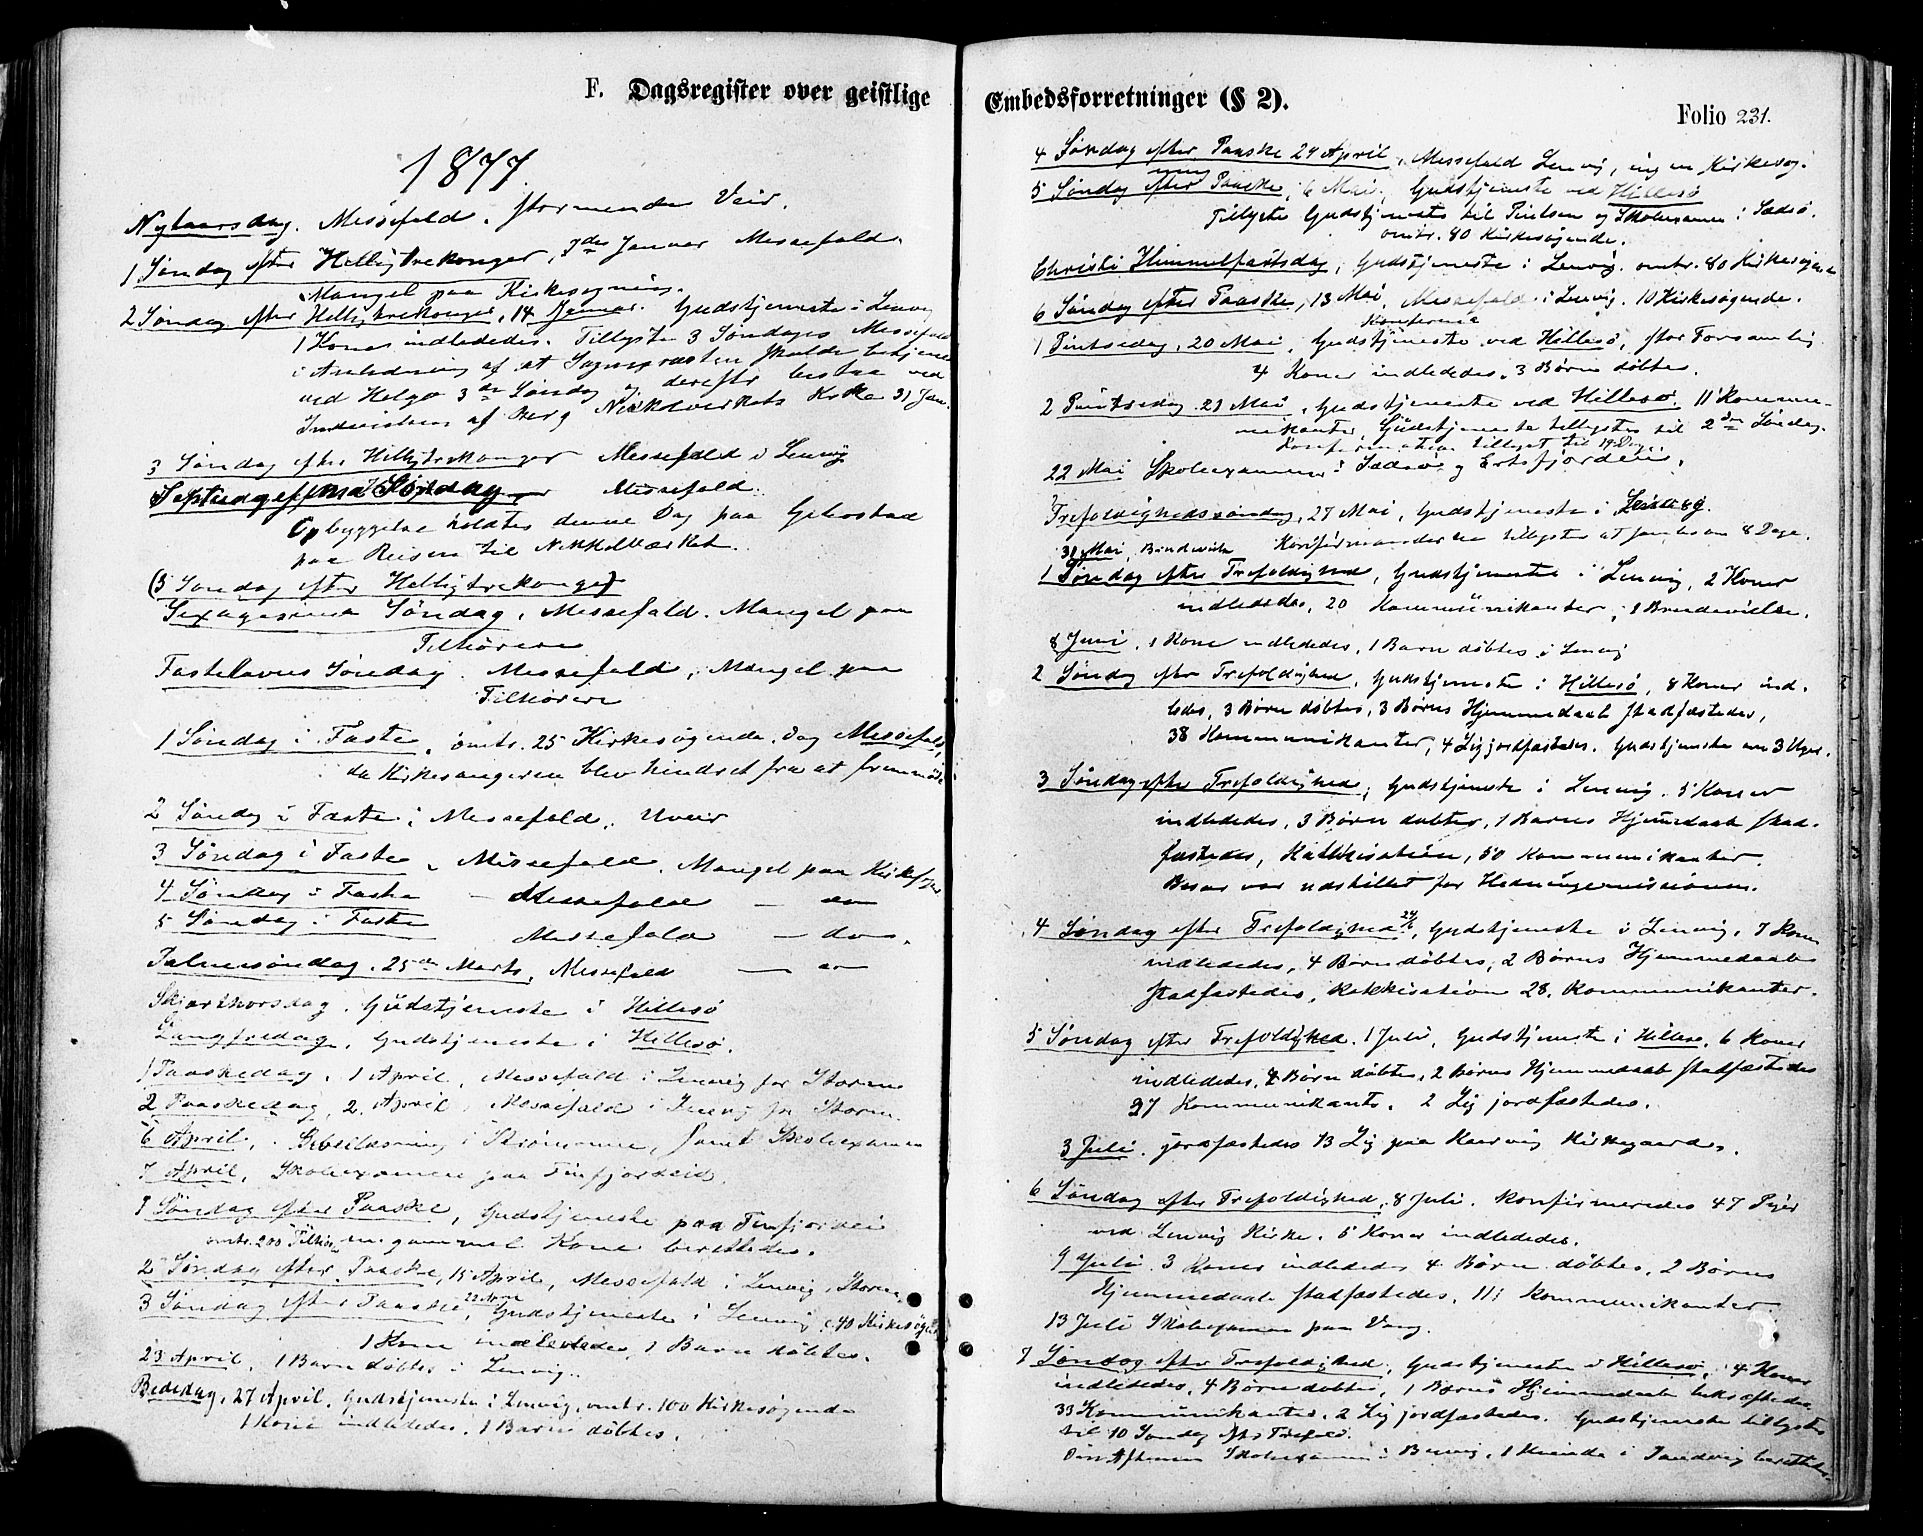 F. Dagsregister over geistlige
1877
Nytaarsdag. Messefald. stormende Veir.
1 Søndag efter Helligtrekonger, 7de Januar Messefald.
Mangel paa Kirkesøgning.
2 Søndag efter Helligtrekonger, 14 Januar. Gudstjeneste i Lenvig
1 Kone indlededes. Tillyste 3 Søndages Messefald
i Anledning af at Sognepræsten skulde betjene
ved Helgø 3die Søndag og derefter bistaa ved
Indvielsen af Berg Nikkelverkets Kirke 31 Jan.
3 Søndag efter Helligtrekonger Messefald i Lenvig
Septuagesima Søndag Messefald.
Opbyggelse holdtes denne Dag paa Gibostad
paa Reisen til Nikkelværket.
(5 Søndag efter Helligtrekonger)
Sexagesima Søndag. Messefald. Mangel paa
Tilhørere
Fastelavns Søndag. Messefald, Mangel paa
Tilhørere
1 Søndag i Faste, omtr. 25 Kirkesøgende. dog Messefald,
da Kirkesangeren blev hindret fra at fremmøde
2 Søndag i Faste; Messefald. Uveir
3 Søndag i Faste, Messefald. Mangel paa Kirkefolk
4 Søndag i Faste – Messefald – do
5 Søndag i Faste Messefald – do.
Palmesøndag, 25de Marts, Messefald – do
Skjærthorsdag. Gudstjeneste i Hillesø
Langfredag, Gudstjeneste i Hillesø.
1 Paaskedag, 1 April, Messefald i Lenvig for Storm
2 Paaskedag, 2. April, Messefald i Lenvig for Storm.
6 April, Bibellæsning i Strømmen, samt Skoleexamen
7 April, Skoleexamen paa Finfjordeid.
1 Søndag efter Paaske, Gudstjeneste paa Finfjordei
omtr. 200 Tilhør. en gammel Kone berettedes.
2 Søndag efter Paaske, 15 April, Messefald i Lenvig, Storm.
3 Søndag efter Paaske, 22 April Gudstjeneste i Lenvig, c. 40 Kirkesøgende
1 Kone indlededes, 1 Barn døbtes.
23 April, 1 Barn døbtes i Lenvig.
Bededag, 27 April, Gudstjeneste i Lenvig, omtr. 100 Kirkesøgende
1 Kone indlededes. 1 Barn døbtes.
Embedsforretninger (§ 2).
Folio 231.
4 Søndag efter Paaske 29 April, Messefald Lenvig, ingen Kirkesøg.
5 Søndag efter Paaske, 6 Mai, Gudstjeneste ved Hillesø
Tillyste Gudstjeneste til Pintsen og Skoleexamen i Sædsø.
omtr. 80 Kirkesøgende.
Christi Himmelfartsdag, Gudstjeneste i Lenvig. omtr. 80 Kirkesøgende
6 Søndag efter Paaske, 13 Mai, Messefald i Lenvig. 10 Kirkesøgende.
1 Pintsedag, 20 Mai, Gudstjeneste ved Hillesø, stor Forsamling
4 Koner indlededes. 3 Børn døbtes.
2 Pintsedag 21 Mai, Gudstjeneste ved Hillesø. 11 Kommu-
nikanter, Gudstjeneste tillystes til 2den Søndag.
22 Mai Skoleexamen i Sædsø og Ersfjorden.
Trefoldighedssøndag, 27 Mai, Gudstjeneste i Lenvig.
31 Mai, Brudevielse Konfirmanderne tillystes at samles om 8 Dage.
1 Søndag efter Trefoldighed, Gudstjeneste i Lenvig, 2 Koner
indlededes, 20 Kommunikanter, 1 Brudevielse.
8 Juni, 1 Kone indlededes, 1 Barn døbtes i Lenvig
2 Søndag efter Trefoldighed, Gudstjeneste i Hillesø, 8 Koner ind-
ledes, 3 Børn døbtes, 3 Børns Hjemmedaab stadfæstedes,
38 Kommunikanter, 4 Lig jordfæstedes. Gudstjeneste om 3 Uger.
3 Søndag efter Trefoldighed, Gudstjeneste i Lenvig. 5 Koner
indlededes, 3 Børn døbtes, 1 Barns Hjemmedaab stad-
fæstedes, Katekisation, 50 Kommunikanter.
Bøssen var udstillet for Hedningemissionen.
4 Søndag efter Trefoldighed 24/6, Gudstjeneste i Lenvig, 7 Koner
indlededes, 4 Børn døbtes, 2 Børns Hjemmedaab
stadfæstedes, Katekisation 28. Kommunikanter.
5 Søndag efter Trefoldighed. 1 Juli, Gudstjeneste i Hillesø, 6 Koner
indlededes, 4 Børn døbtes, 2 Børns Hjemmedaab stadfæstedes
37 Kommunikants. 2 Lig jordfæstedes.
3 Juli. jordfæstedes 13 Lig paa Kirkegaarden.
6 Søndag efter Trefoldighed, 8 Juli. konfirmeredes 47 Piger
ved Lenvig Kirke. 5 Koner indlededes.
9 Juli. 3 Koner indlededes 4 Børn døbtes, 2 Børns
Hjemmedaab stadfæstedes, 111 Kommunikanter
13 Juli Skoleexamen paa Vang.
7 Søndag efter Trefoldighed, Gudstjeneste i Hillesø, 4 Koner
indlededes, 4 Børn døbtes, 1 Barns Hjemmedaab bekræftedes
33 Kommunikanter. 2 Lig jordfæstedes. Gudstjeneste tillystes
til 10 Søndag efter Trefold.
Skoleexamen i 1 Kvinde i Sandvig berettedes